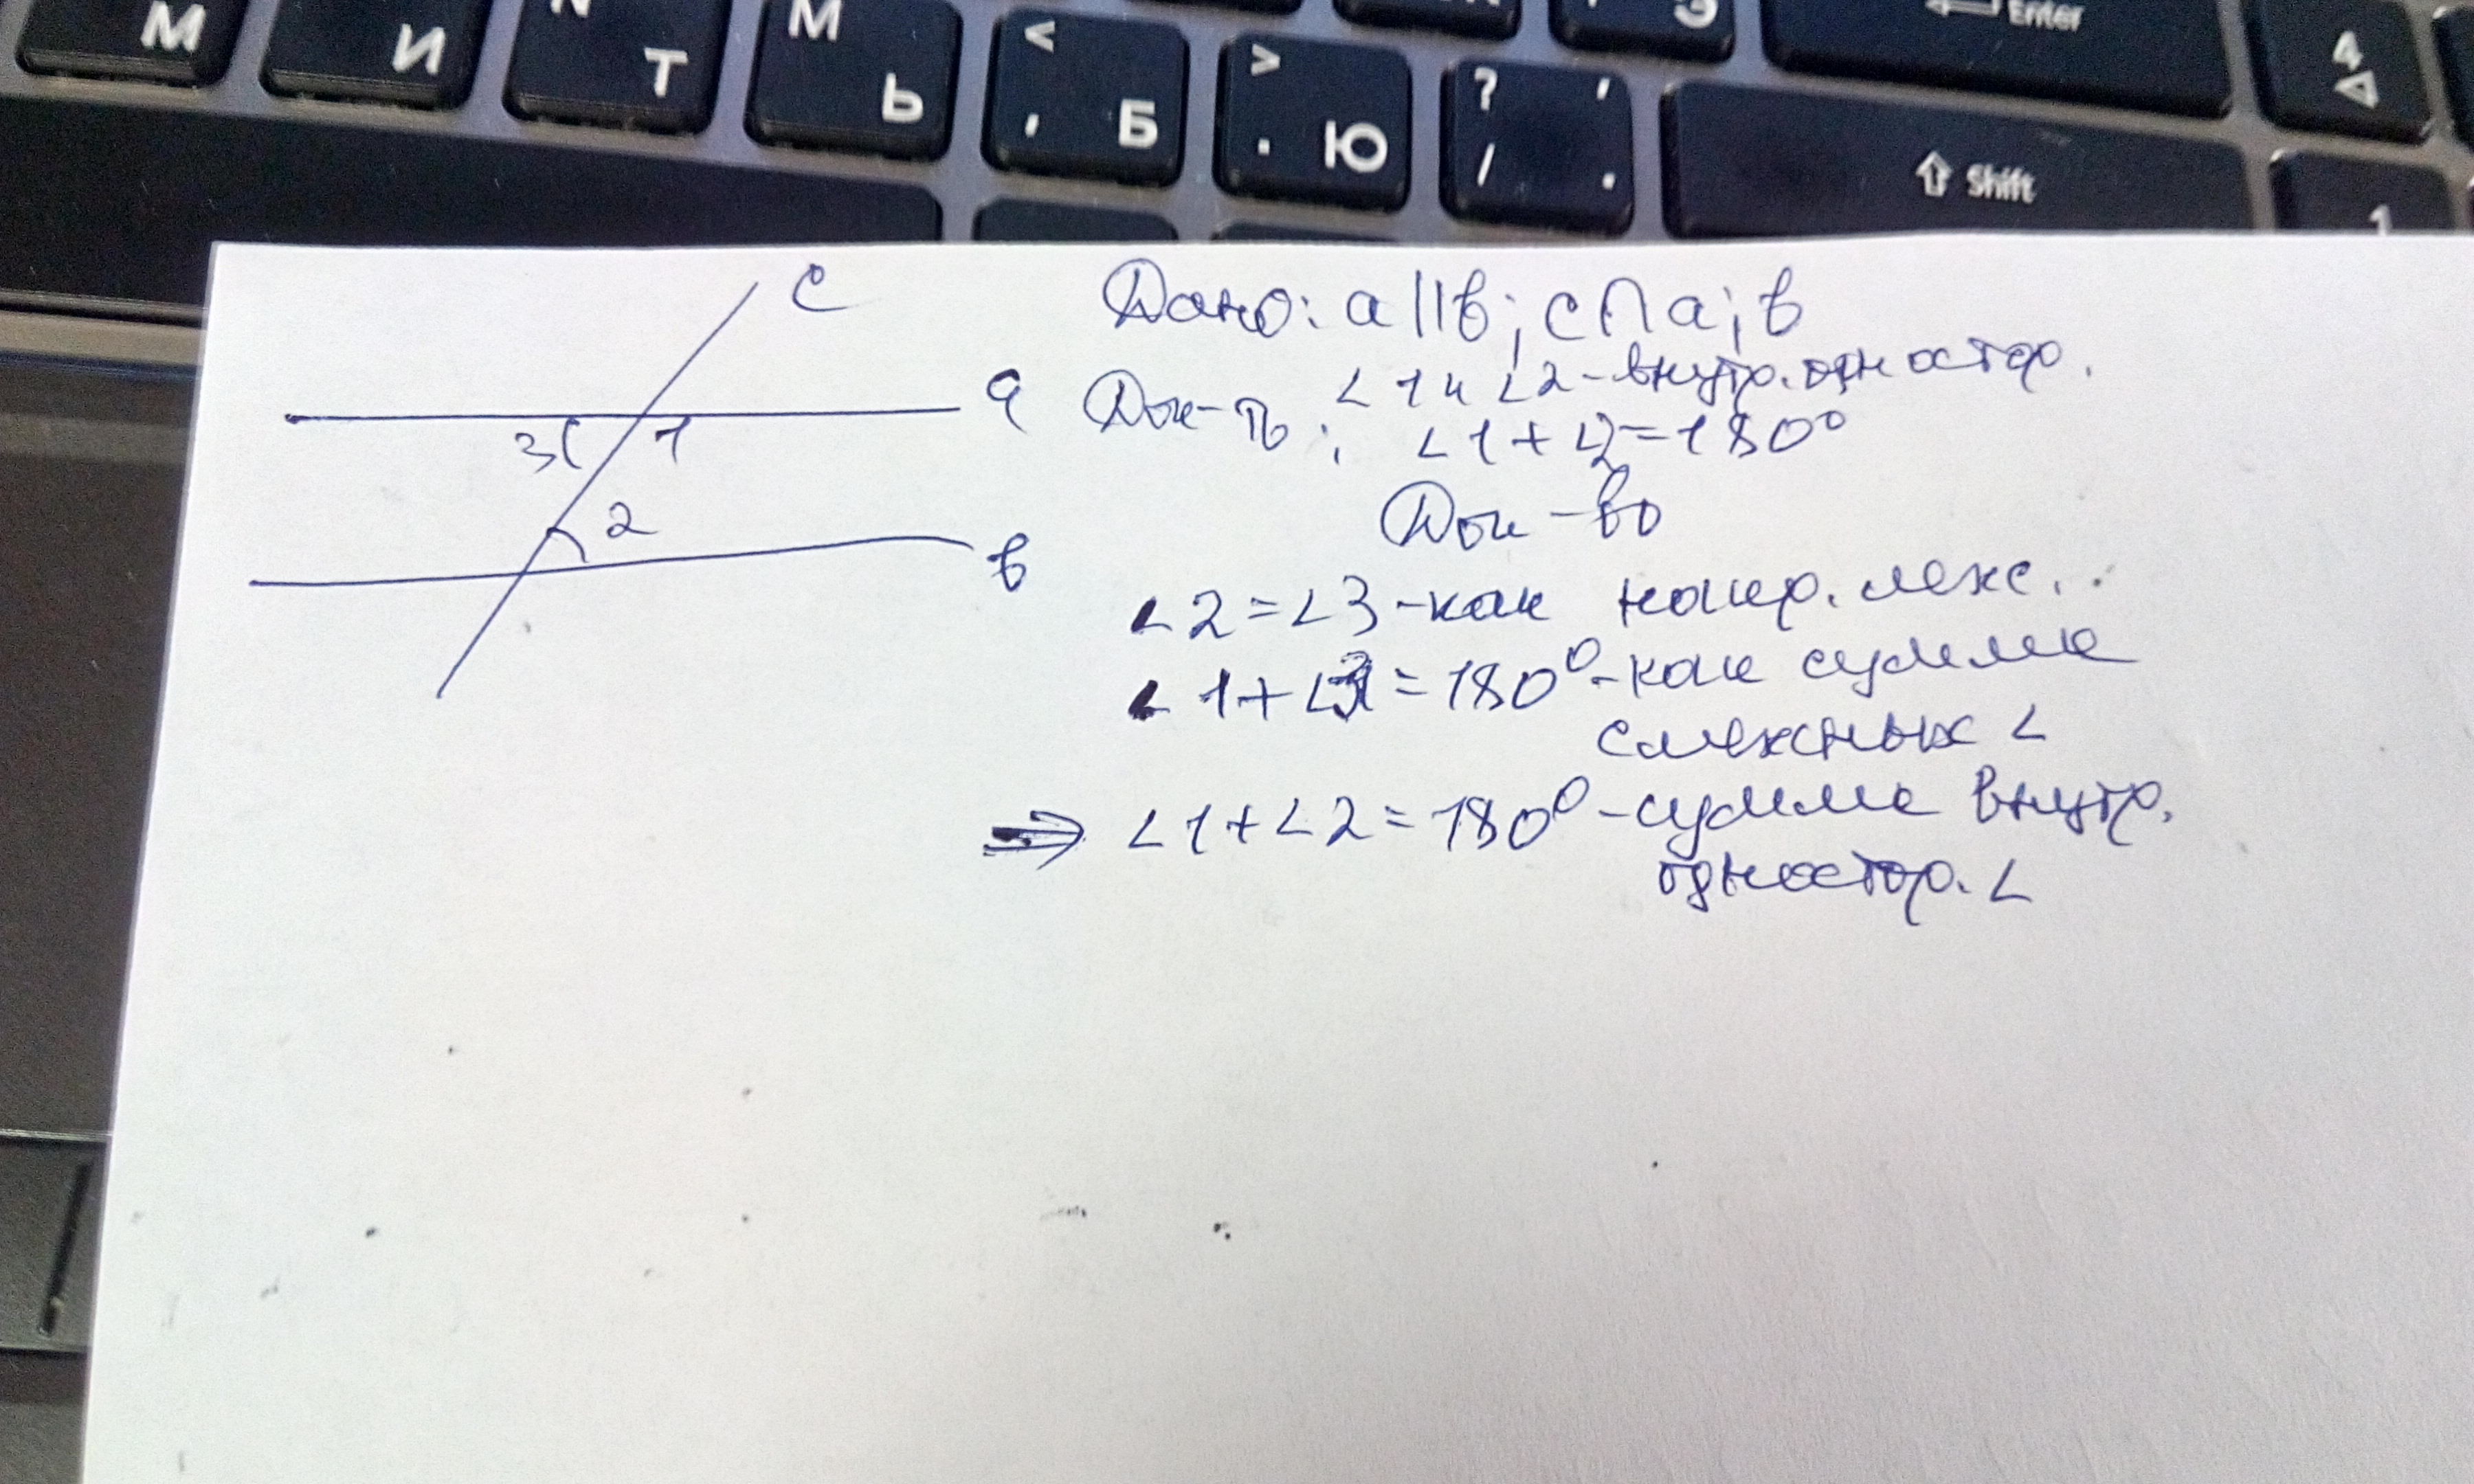 М И N Т М Ь < , Б > . Ю ? , / . Э Enter 4
Shift 1
c
a
3 1
2
в
Дано: a||в; c∩a; в
∠1 и ∠2 - внутр. одностор.
Док-ть: ∠1+∠2=180°
Док-во
∠2=∠3-как накр. леж.
∠1+∠3=180°-как сумма
смежных ∠
⇒ ∠1+∠2=180°-сумма внутр.
одностор. ∠